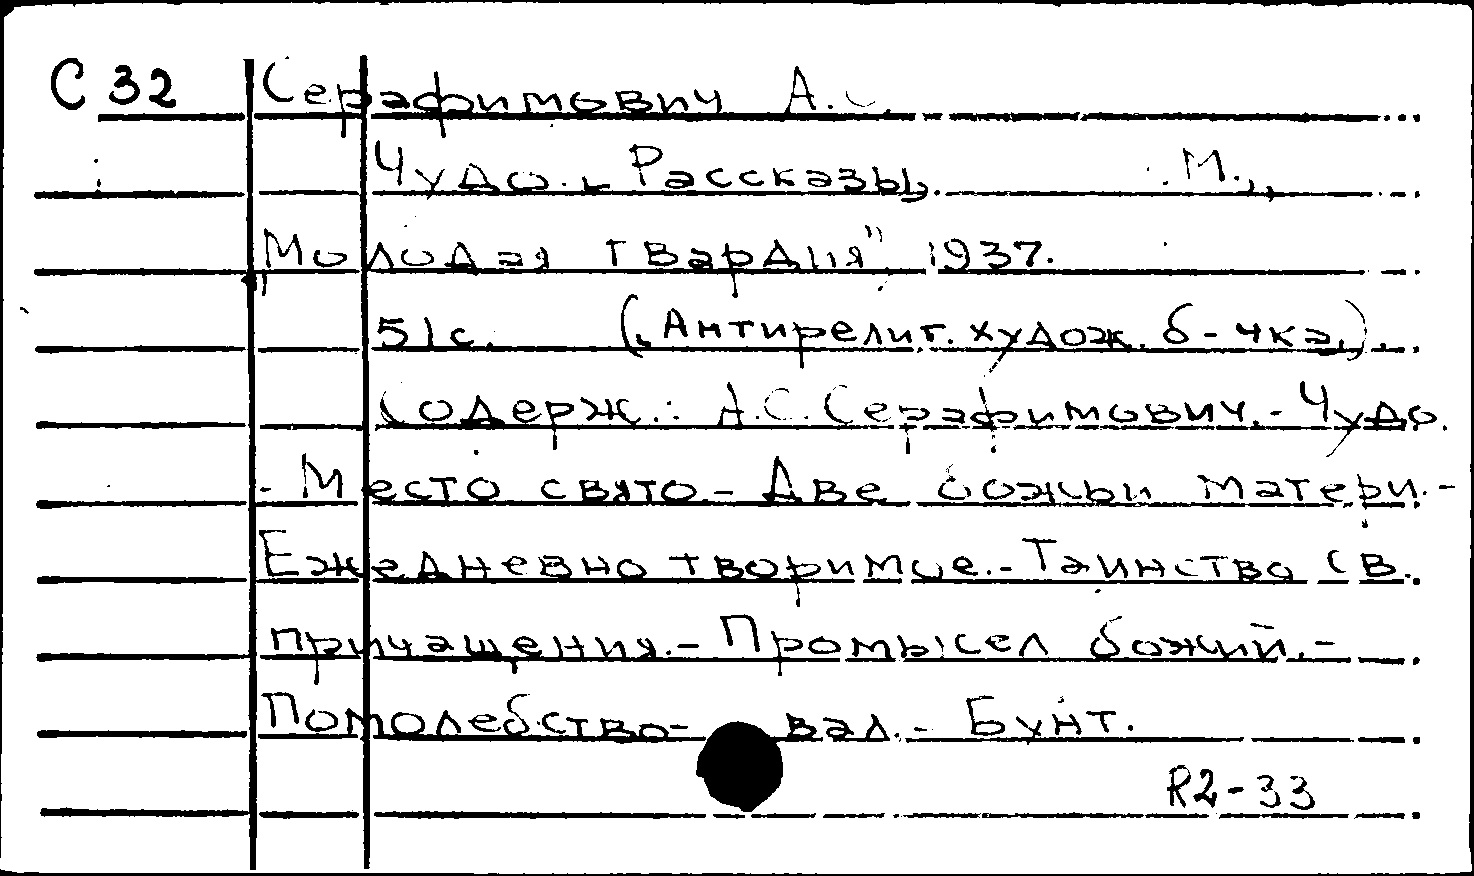 С 32 Серафимович А.С.
Чудо. Рассказы. М.,
"Молодая гвардия" 1937.
51с. (Антирелиг. худож. б-чка.).
Содерж.: А.С. Серафимович.- Чудо.
- Место свято - Две божьи матери.-
Ежедневно творимое.- Таинство св.
причащения.- Промысел божий.-
Помолебство- вал.- Бунт.
R2-33